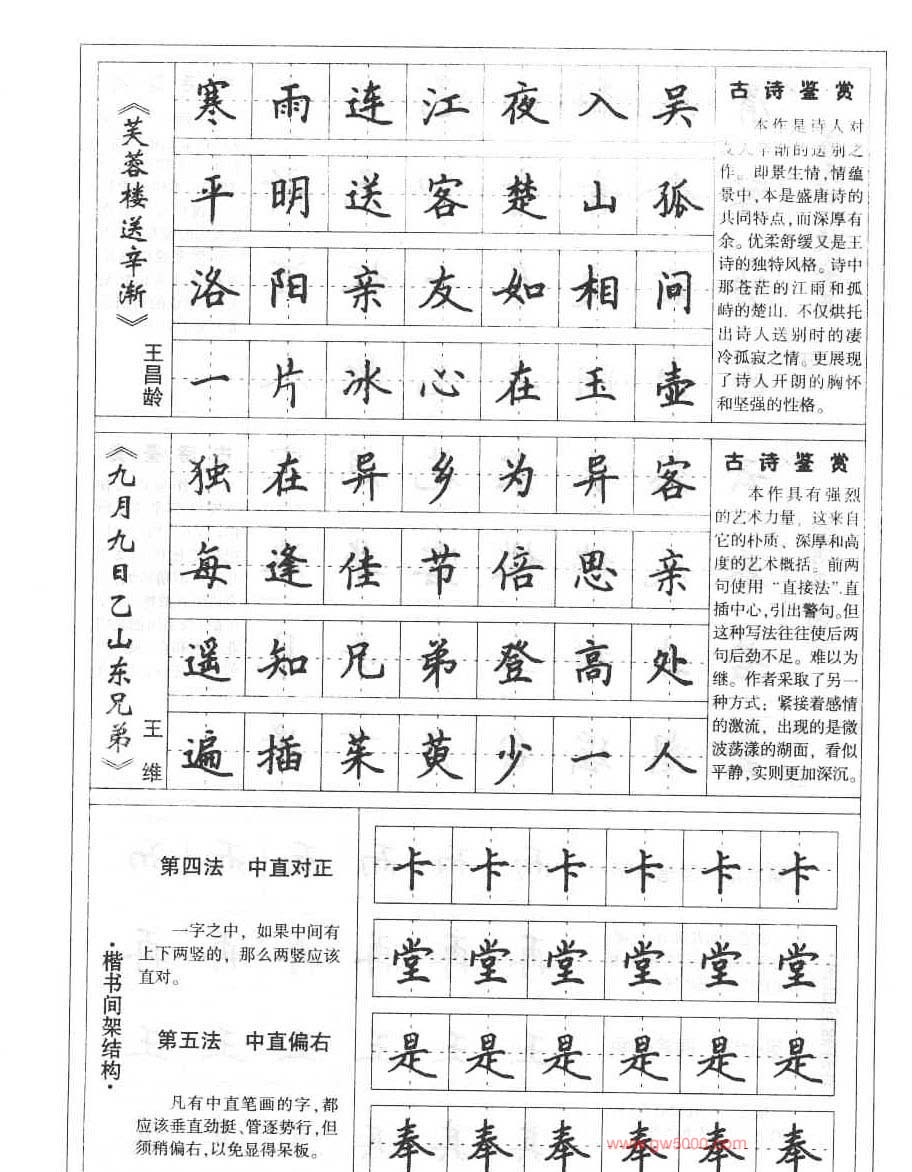 《芙蓉楼送辛渐》
王昌龄
寒雨连江夜入吴
平明送客楚山孤
洛阳亲友如相间
一片冰心在玉壶
古诗鉴赏
本作是诗人对
友人辛渐的送别之
作。即景生情,情蕴
景中,本是盛唐诗的
共同特点,而深厚有
余。优柔舒缓又是王
诗的独特风格。诗中
那苍茫的江雨和孤
峙的楚山. 不仅烘托
出诗人送别时的凄
冷孤寂之情。更展现
了诗人开朗的胸怀
和坚强的性格。
《九月九日乙山东兄弟》
王维
独在异乡为异客
每逢佳节倍思亲
遥知兄弟登高处
遍插茱萸少一人
古诗鉴赏
本作具有强烈
的艺术力量，这来自
它的朴质、深厚和高
度的艺术概括。前两
句使用“直接法”.直
插中心,引出警句。但
这种写法往往使后两
句后劲不足。难以为
继。作者采取了另一
种方式：紧接着感情
的激流，出现的是微
波荡漾的湖面，看似
平静,实则更加深沉。
·楷书间架结构·
第四法　中直对正
一字之中，如果中间有
上下两竖的，那么两竖应该
直对。
第五法　中直偏右
凡有中直笔画的字,都
应该垂直劲挺、管逐势行,但
须稍偏右,以免显得呆板。
卡卡卡卡卡卡
堂堂堂堂堂堂
是是是是是是
奉奉奉奉奉奉
www.gw5000.com